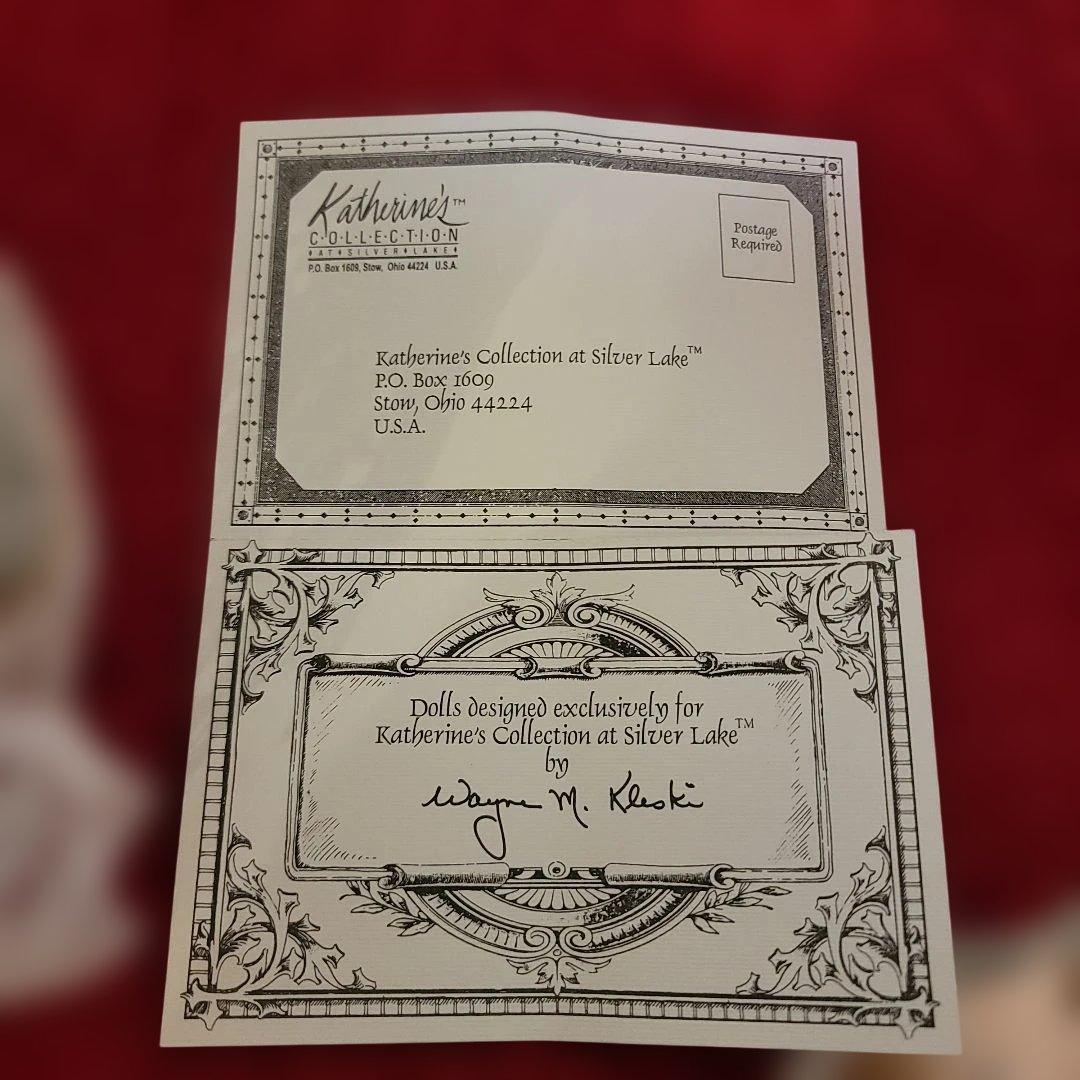 Katherine's™
C·O·L·L·E·C·T·I·O·N
·A·T·S·I·L·V·E·R·L·A·K·E·
P.O. Box 1609, Stow, Ohio 44224 U.S.A.
Postage
Required
Katherine's Collection at Silver Lake™
P.O. Box 1609
Stow, Ohio 44224
U.S.A.
Dolls designed exclusively for
Katherine's Collection at Silver Lake™
by
Wayne M. Kleski